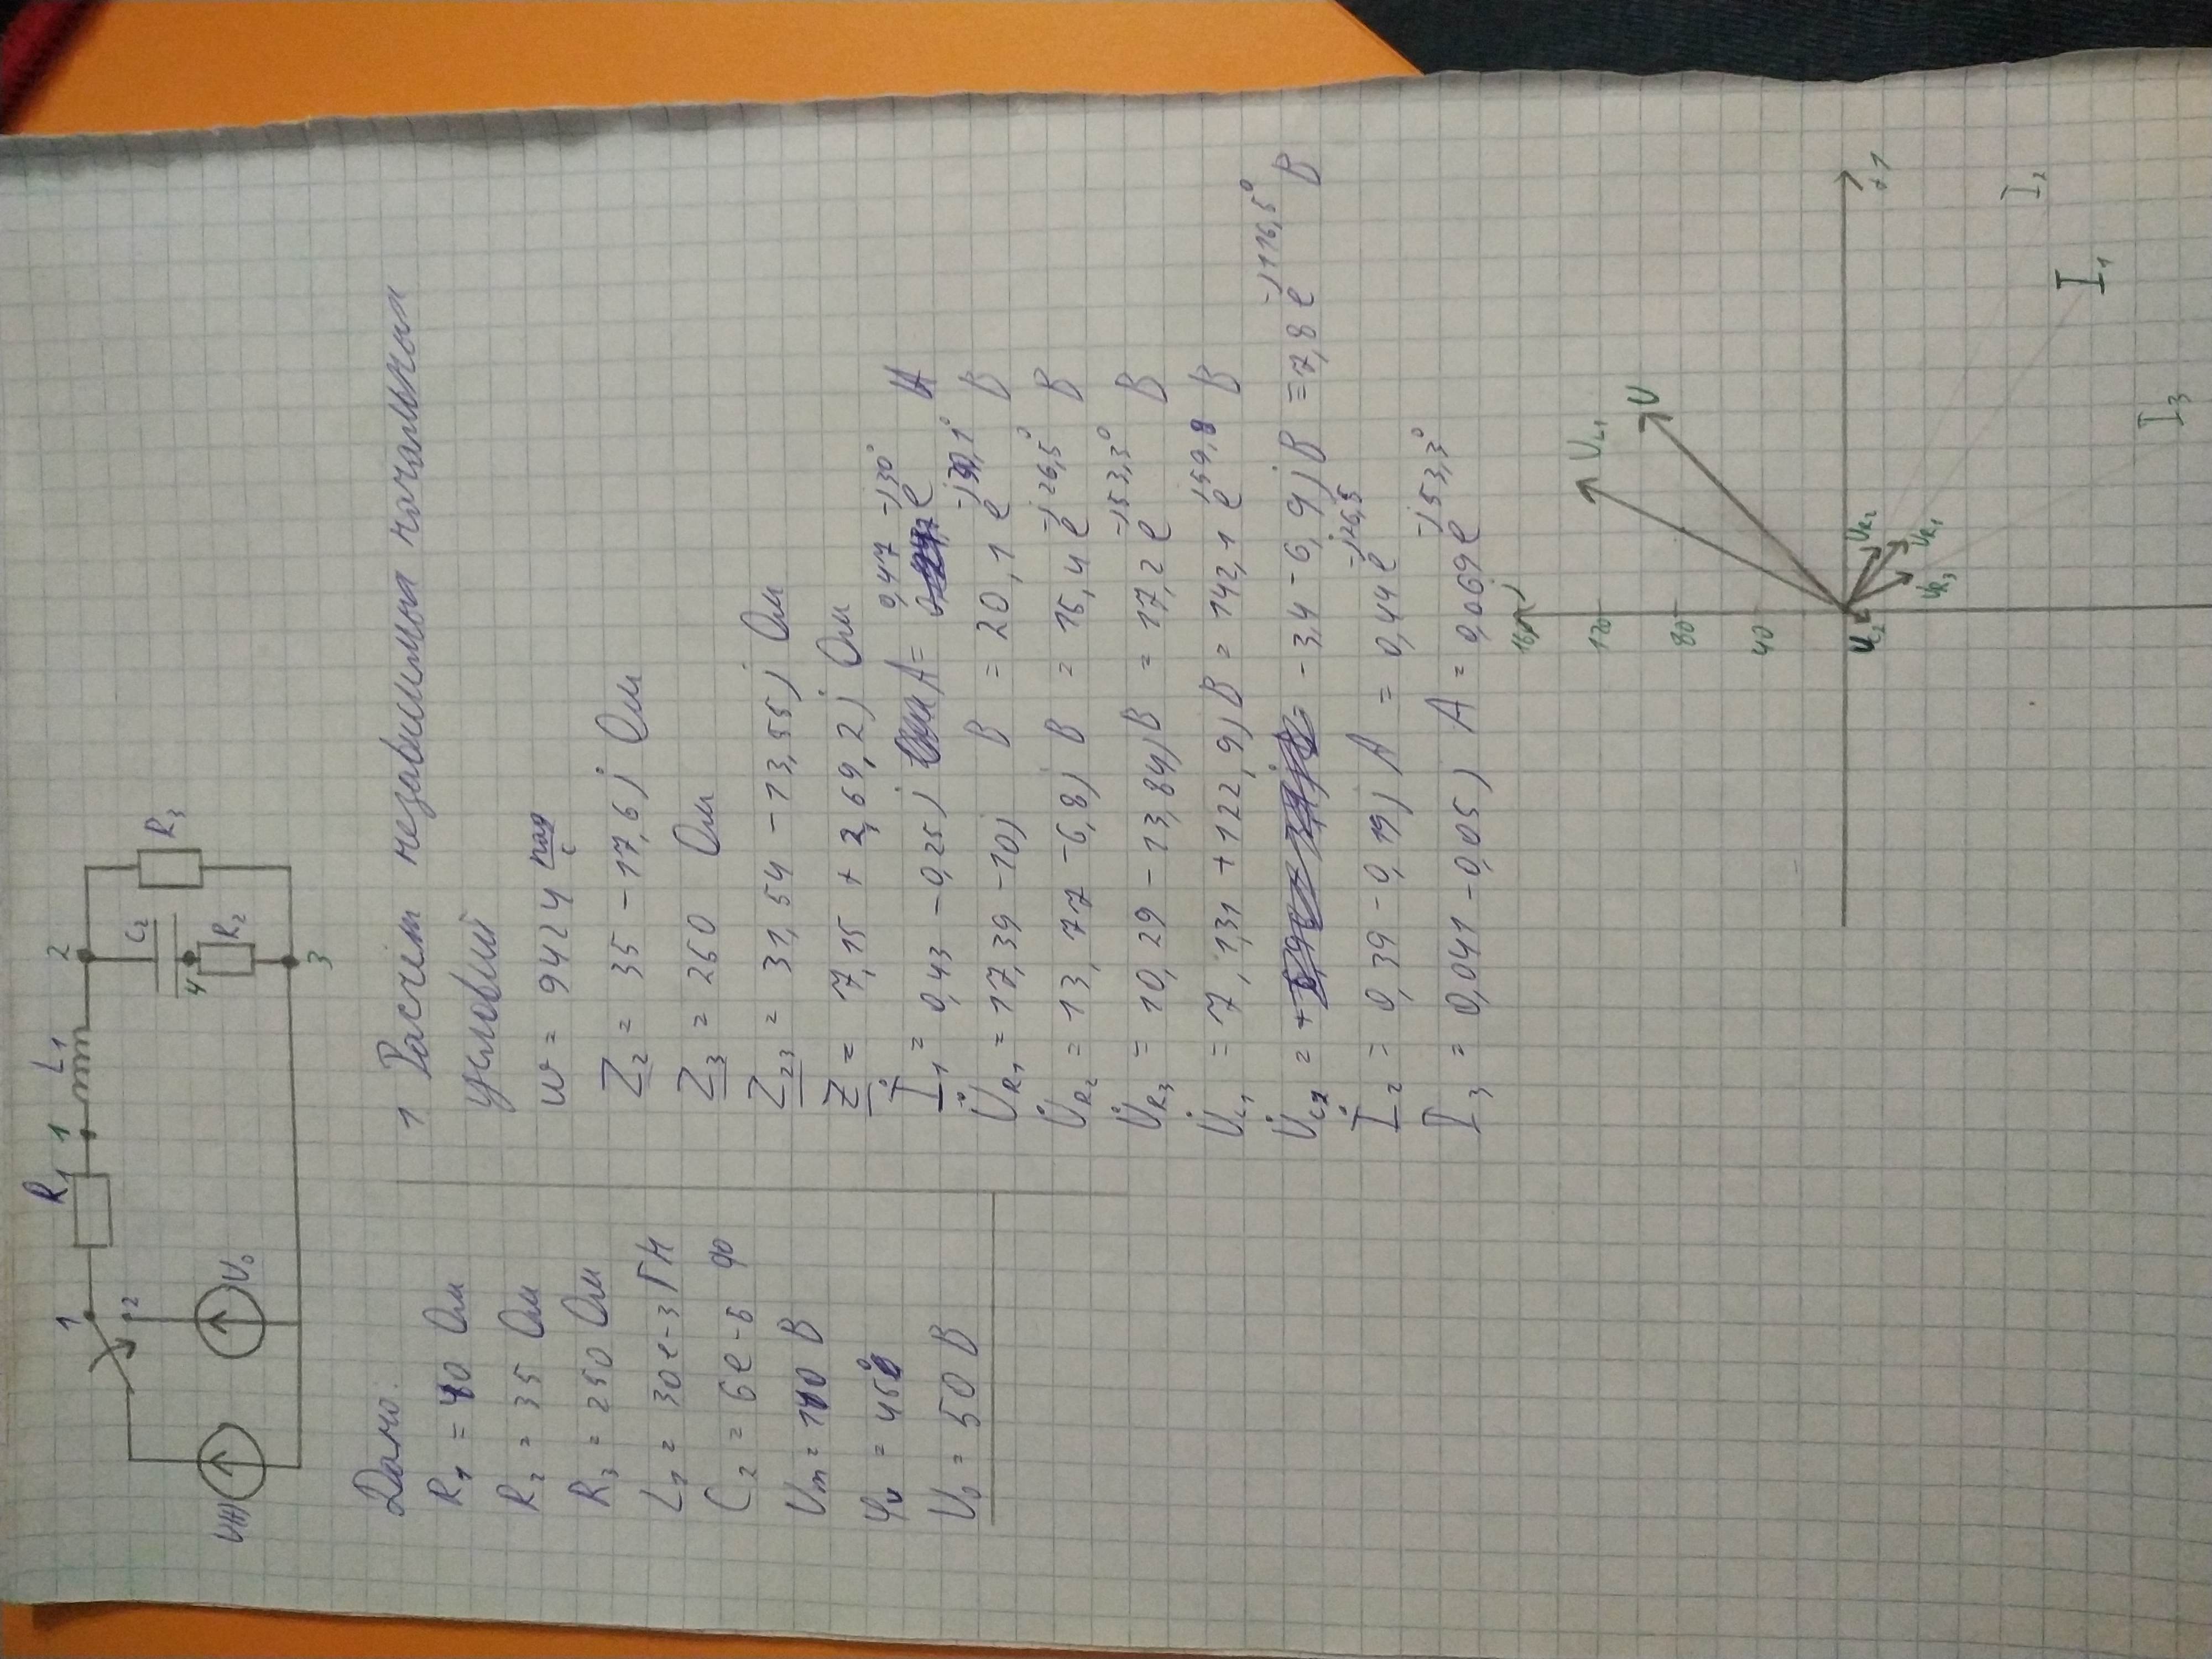 1 R₁ 1 L₁ 2
2
C₂
R₃
4
R₂
U(t) U₀
3
Дано:
R₁ = 40 Ом
R₂ = 35 Ом
R₃ = 250 Ом
L₁ = 30e-3 ГН
C₂ = 6e-6 Ф
Um = 140 В
φu = 45°
U₀ = 50 В
1 Расчёт независимых начальных
условий
w = 9424 рад/с
Z₂ = 35 - 17,6j Ом
Z₃ = 250 Ом
Z₂₃ = 31,54 - 13,55j Ом
Z = 7,15 + 2,69,2j Ом
İ₁ = 0,43 - 0,25j А = 0,47 e^-j30° А
U̇R₁ = 17,39 - 10j В = 20,1 e^-j30,1° В
U̇R₂ = 13,77 - 6,8j В = 15,4 e^-j26,5° В
U̇R₃ = 10,29 - 13,84j В = 17,2 e^-j53,3° В
U̇L₁ = 7,131 + 122,9j В = 142,1 e^j59,8 В
U̇C₂ = -3,4 - 6,9j В = 7,8 e^-j116,5° В
İ₂ = 0,39 - 0,19j А = 0,44 e^-j26,5
I₃ = 0,041 - 0,05j А = 0,069 e^-j53,3°
160 j
120 UL₁
U
80
40
UC₂ UR₂
+1
UR₃ UR₁
I₂
I₁
I₃